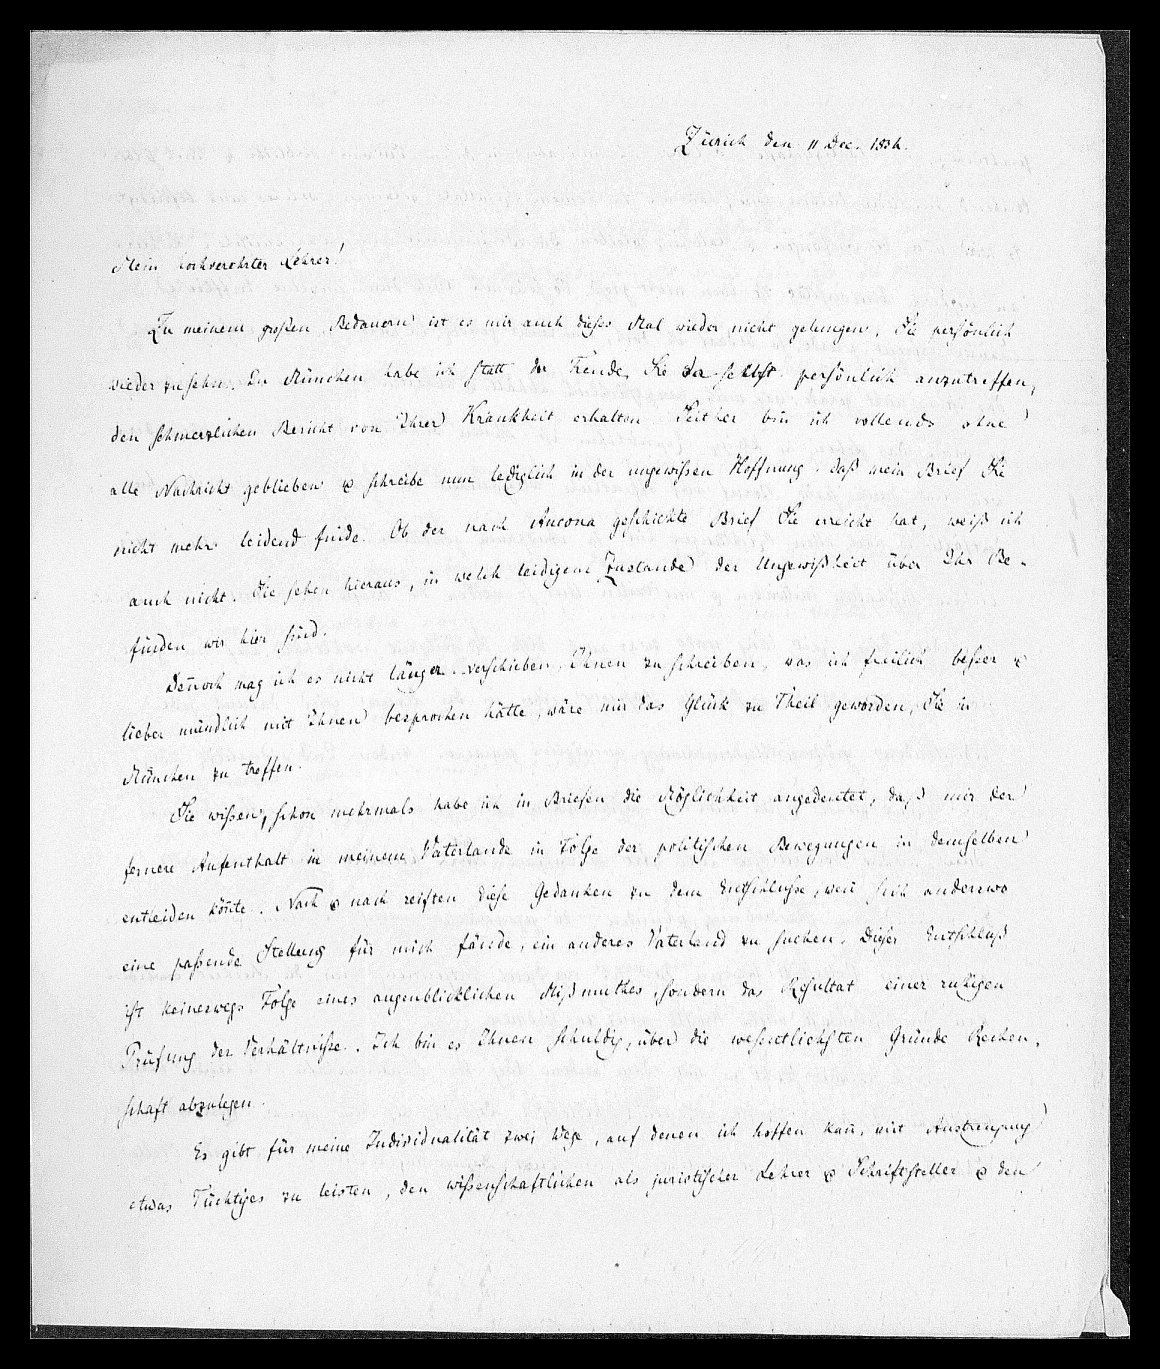 Zürich den 11 Dec. 1834.
Mein hochverehrter Lehrer!
Zu meinem großen Bedauern ist es mir auch dießes Mal wieder nicht gelungen, Sie persönlich
wieder zu sehen. In München habe ich statt der Freude, Sie da selbst persönlich anzutreffen,
den schmerzlichen Bericht von Ihrer Krankheit erhalten. Seither bin ich vollends ohne
alle Nachricht geblieben & schreibe nun lediglich in der ungewißen Hoffnung, daß mein Brief Sie
nicht mehr leidend finde. Ob der nach Ancona geschickte Brief Sie erreicht hat, weiß ich
auch nicht. Sie sehen hieraus, in welch leidigem Zustande der Ungewißheit über Ihr Be-
finden wir hier sind.
Deñoch mag ich es nicht länger verschieben, Ihnen zu schreiben, was ich freilich beßer &
lieber mündlich mit Ihnen besprochen hätte, wäre mir das Glück zu Theil geworden, Sie in
München zu treffen.
Sie wißen, schon mehrmals habe ich in Briefen die Möglichkeit angedeutet, daß mir der
fernere Aufenthalt in meinem Vaterlande in Folge der politischen Bewegungen in demselben
entleiden köñte. Nach & nach reiften diese Gedanken zu dem Entschluße, weñ sich anderswo
eine paßende Stellung für mich fände, ein anderes Vaterland zu suchen. Dieser Entschluß
ist keineswegs Folge eines augenblicklichen Mißmuthes, sondern das Resultat einer ruhigen
Prüfung der Verhältniße. Ich bin es Ihnen schuldig, über die wesentlichsten Gründe Rechen-
schaft abzulegen.
Es gibt für meine Individualität zwei Wege, auf denen ich hoffen kañ, mit Anstrengung
etwas Tüchtiges zu leisten, den wißenschaftlichen als juristischer Lehrer & Schriftsteller & den